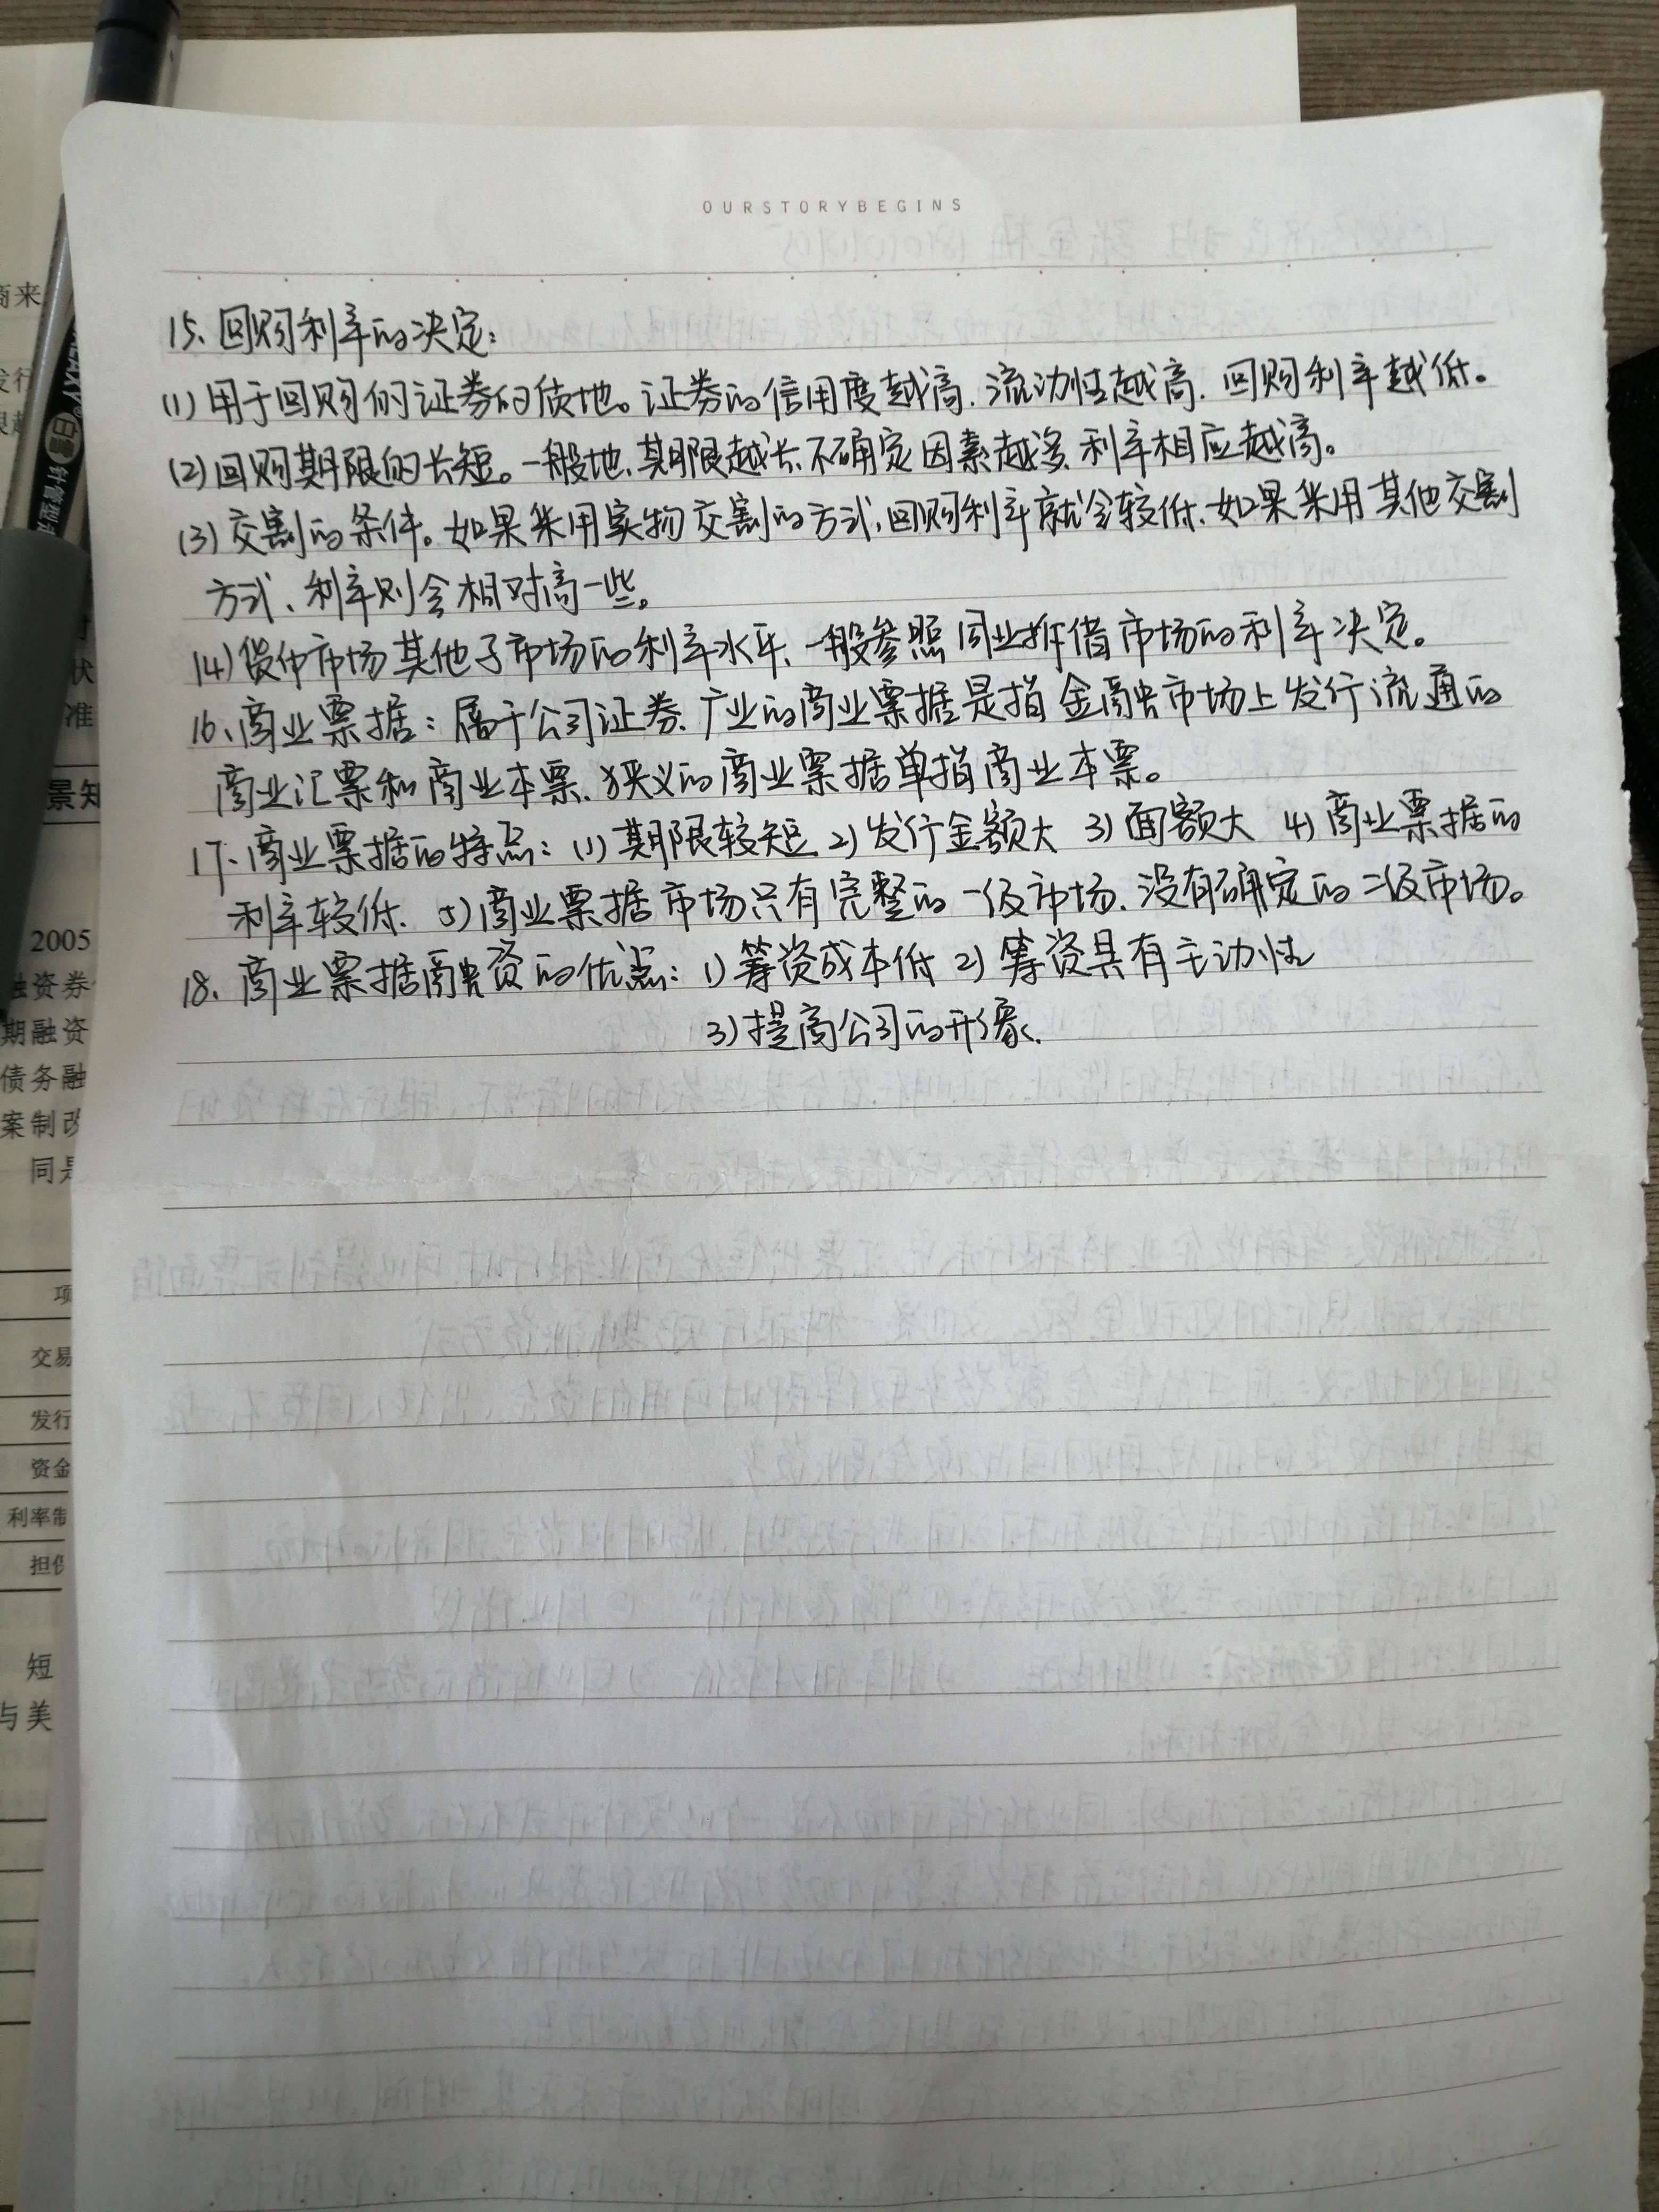 OURSTORYBEGINS
15、回购利率的决定：
(1)用于回购的证券的质地。证券的信用度越高、流动性越高、回购利率越低。
(2)回购期限的长短。一般地、期限越长、不确定因素越多、利率相应越高。
(3)交割的条件。如果采用实物交割的方式、回购利率就会较低、如果采用其他交割
方式、利率则会相对高一些。
(4)货币市场其他子市场的利率水平、一般参照同业拆借市场的利率决定。
16、商业票据：属于公司证券、广业的商业票据是指金融市场上发行流通的
商业汇票和商业本票、狭义的商业票据单指商业本票。
17、商业票据的特点：(1)期限较短 2)发行金额大 3)面额大 4)商业票据的
利率较低、5)商业票据市场只有完整的一级市场、没有确定的二级市场。
18、商业票据融资的优点：1)筹资成本低 2)筹资具有主动性
3)提高公司的形象、
商来
发行
状
准
景知
2005
融资券
期融资
债务融
案制改
同是
项
交易
发行
资金
利率制
担保
短
与美